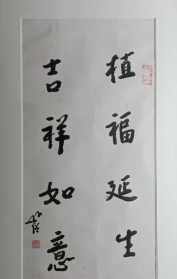 植福延生
吉祥如意